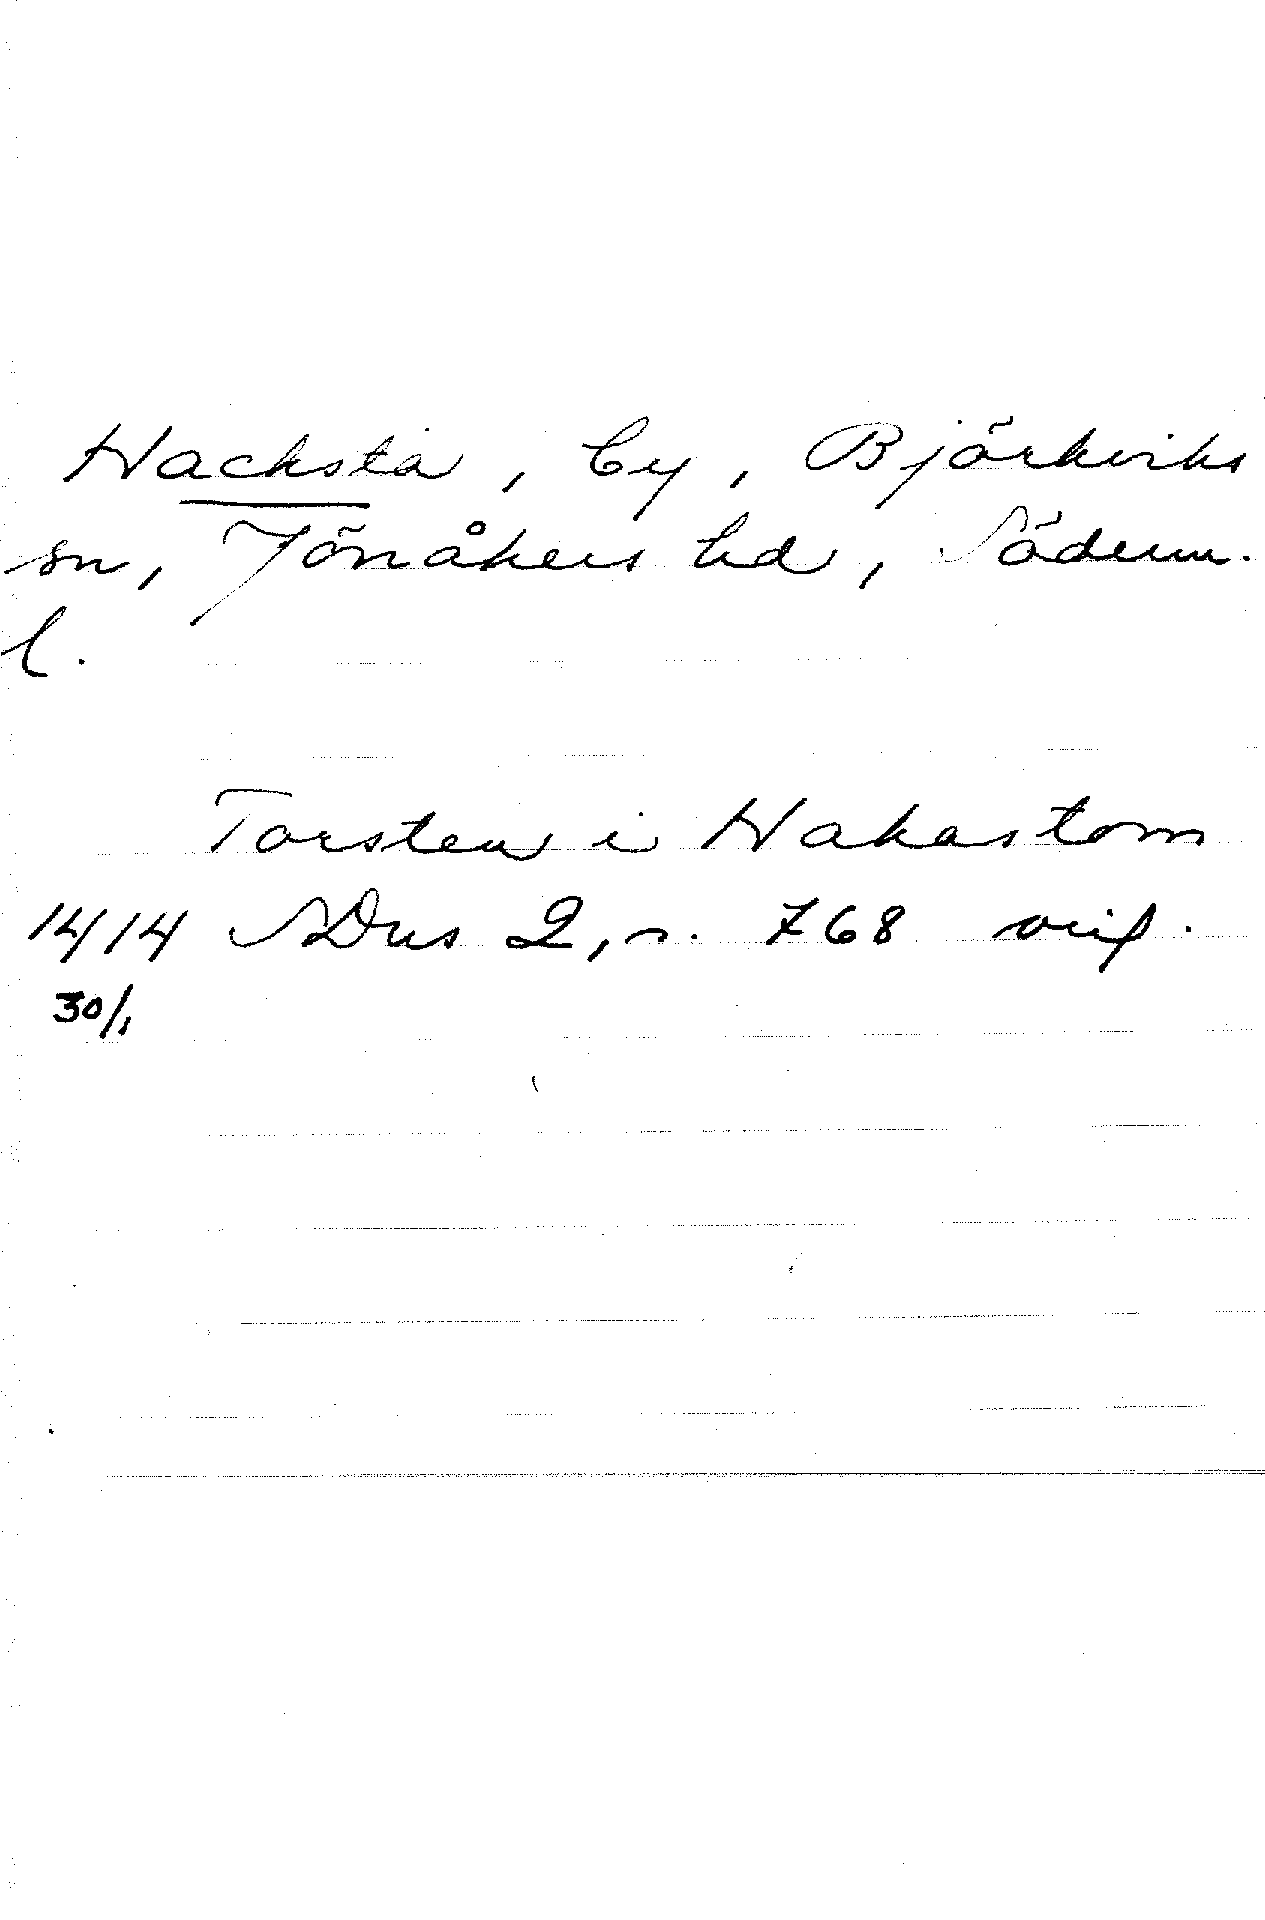 Hacksta, by, Björkviks
sn, Jönåkers hd, Söderm.
l.
Torsten i Hakastom
1414 SDns 2, s. 768 orig.
30/1